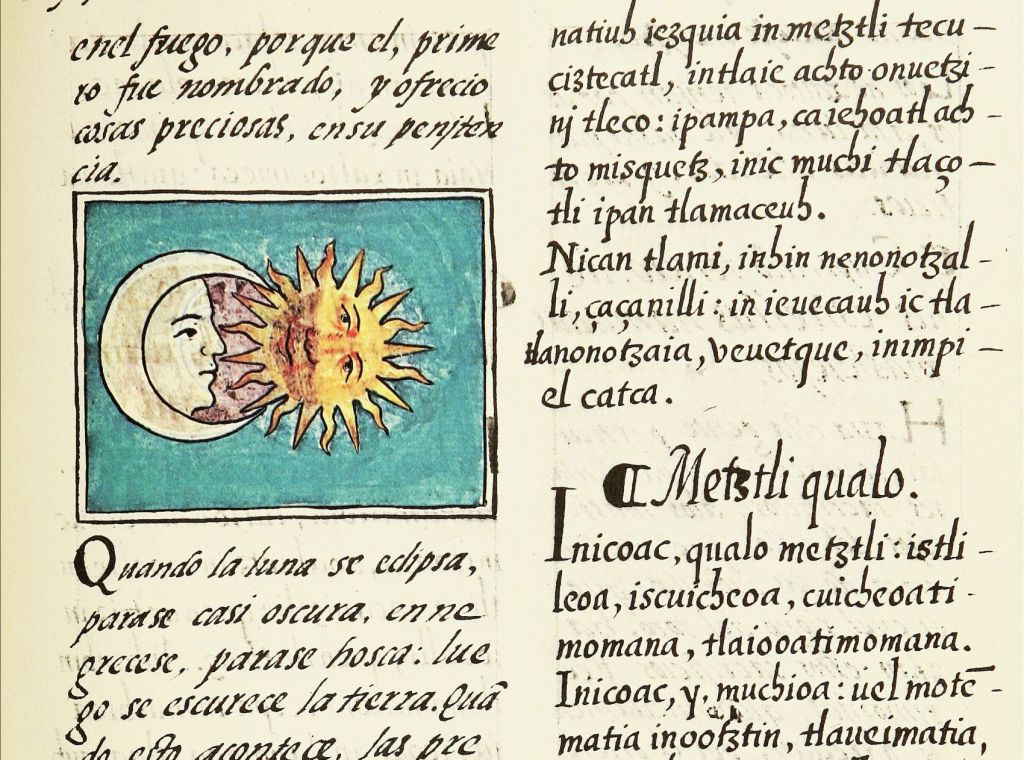 enel fuego, porque el, prime
ro fue nombrado, y ofrecio
cosas preciosas, ensu penjten
cia.
Quando la luna se eclipsa,
parase casi oscura, enne
grecese, parase hosca: lue
go se escurece la tierra. Quã
do esto acontece, las pre
natiuh iezquia in metztli tecu –
ciztecatl, intlaic achto onuetzi –
nj tleco: ipampa, ca iehoatl ach –
to misquetz, inic muchi tlaço –
tli ipan tlamaceuh.
Nican tlami, inhin nenonotzal –
li, çaçanilli: in ieuecauh ic tla –
tlanonotzaia, veuetque, inimpi –
el catca.
¶ Metztli qualo.
Inicoac, qualo metztli: istli –
leoa, iscuicheoa, cuicheoati –
momana, tlaiooatimomana.
Inicoac, y, muchioa: uel motẽ –
matia inootztin, tlaueimatia,